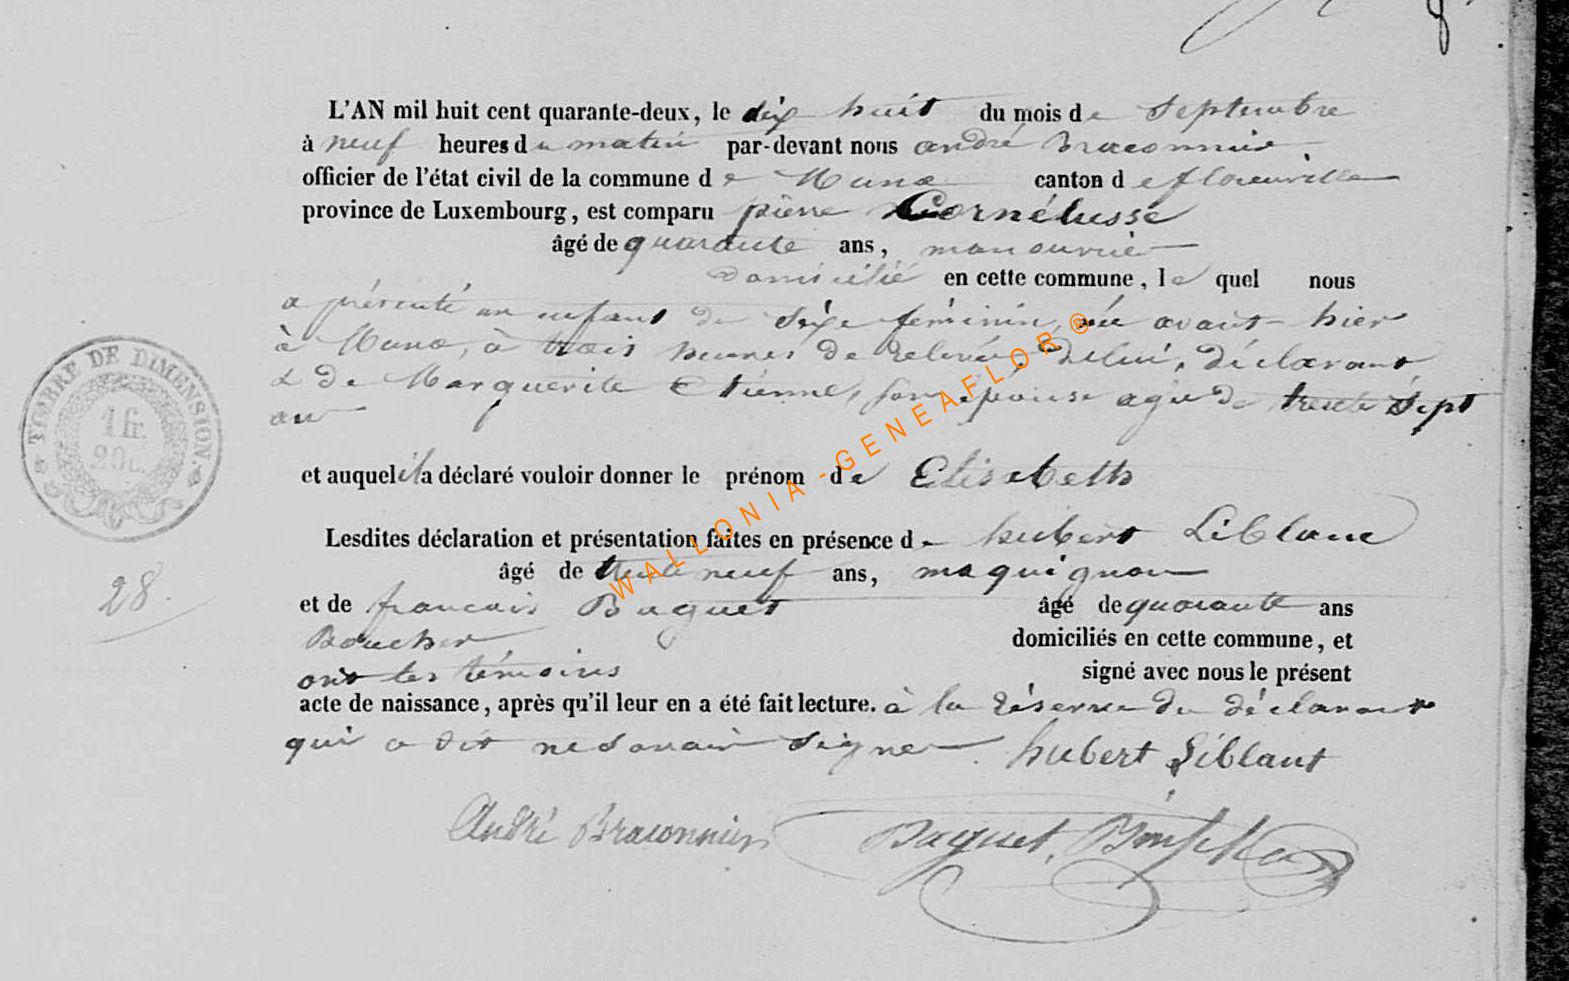 L'AN mil huit cent quarante-deux, le dix huit du mois de Septembre
à neuf heures du matin par-devant nous andré Braconnier
officier de l'état civil de la commune de Muno canton de florenville
province de Luxembourg, est comparu pierre Cornélusse
âgé de quarante ans, manouvrier
domicilié en cette commune, lequel nous
a présenté un enfant du sexe féminin, née avant-hier
à Muno, à trois heures de relevée, de lui, déclarant,
& de Marguerite Etienne, son épouse agée de trente sept
an
et auquel il a déclaré vouloir donner le prénom de Elisabeth
Lesdites déclaration et présentation faites en présence de hubert Liblanc
âgé de trente neuf ans, maquignon
et de francois Baquet âgé de quarante ans
Boucher domiciliés en cette commune, et
ont les témoins signé avec nous le présent
acte de naissance, après qu'il leur en a été fait lecture. à la réserve du déclarant
qui a dit ne savoir signer. hubert Liblant
André Braconnier Baquet,
TIMBRE DE DIMENSION.
1 fr.
20
28.
WALLONIA - GENEAFLOR ®